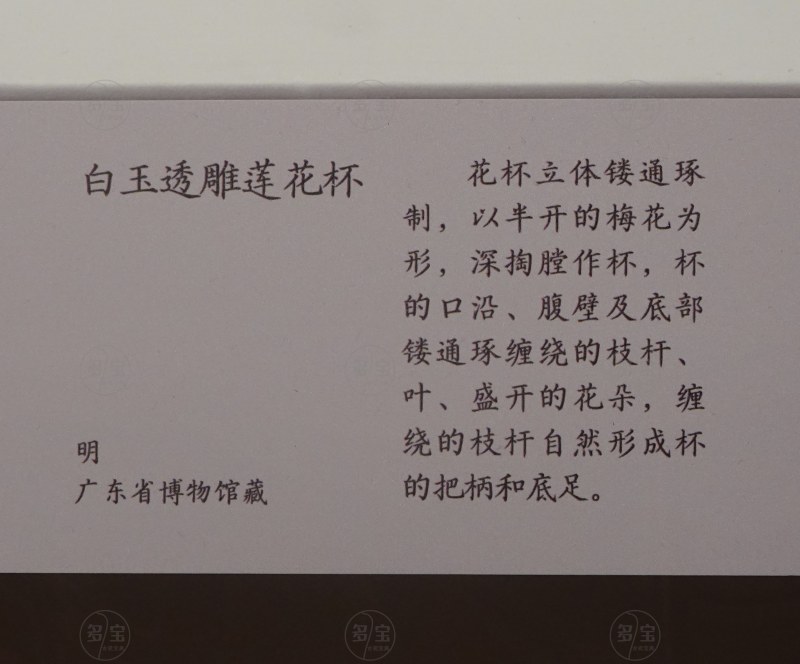 白玉透雕莲花杯
明
广东省博物馆藏
花杯立体镂通琢
制，以半开的梅花为
形，深掏膛作杯，杯
的口沿、腹壁及底部
镂通琢缠绕的枝杆、
叶、盛开的花朵，缠
绕的枝杆自然形成杯
的把柄和底足。
多宝
多宝
多宝